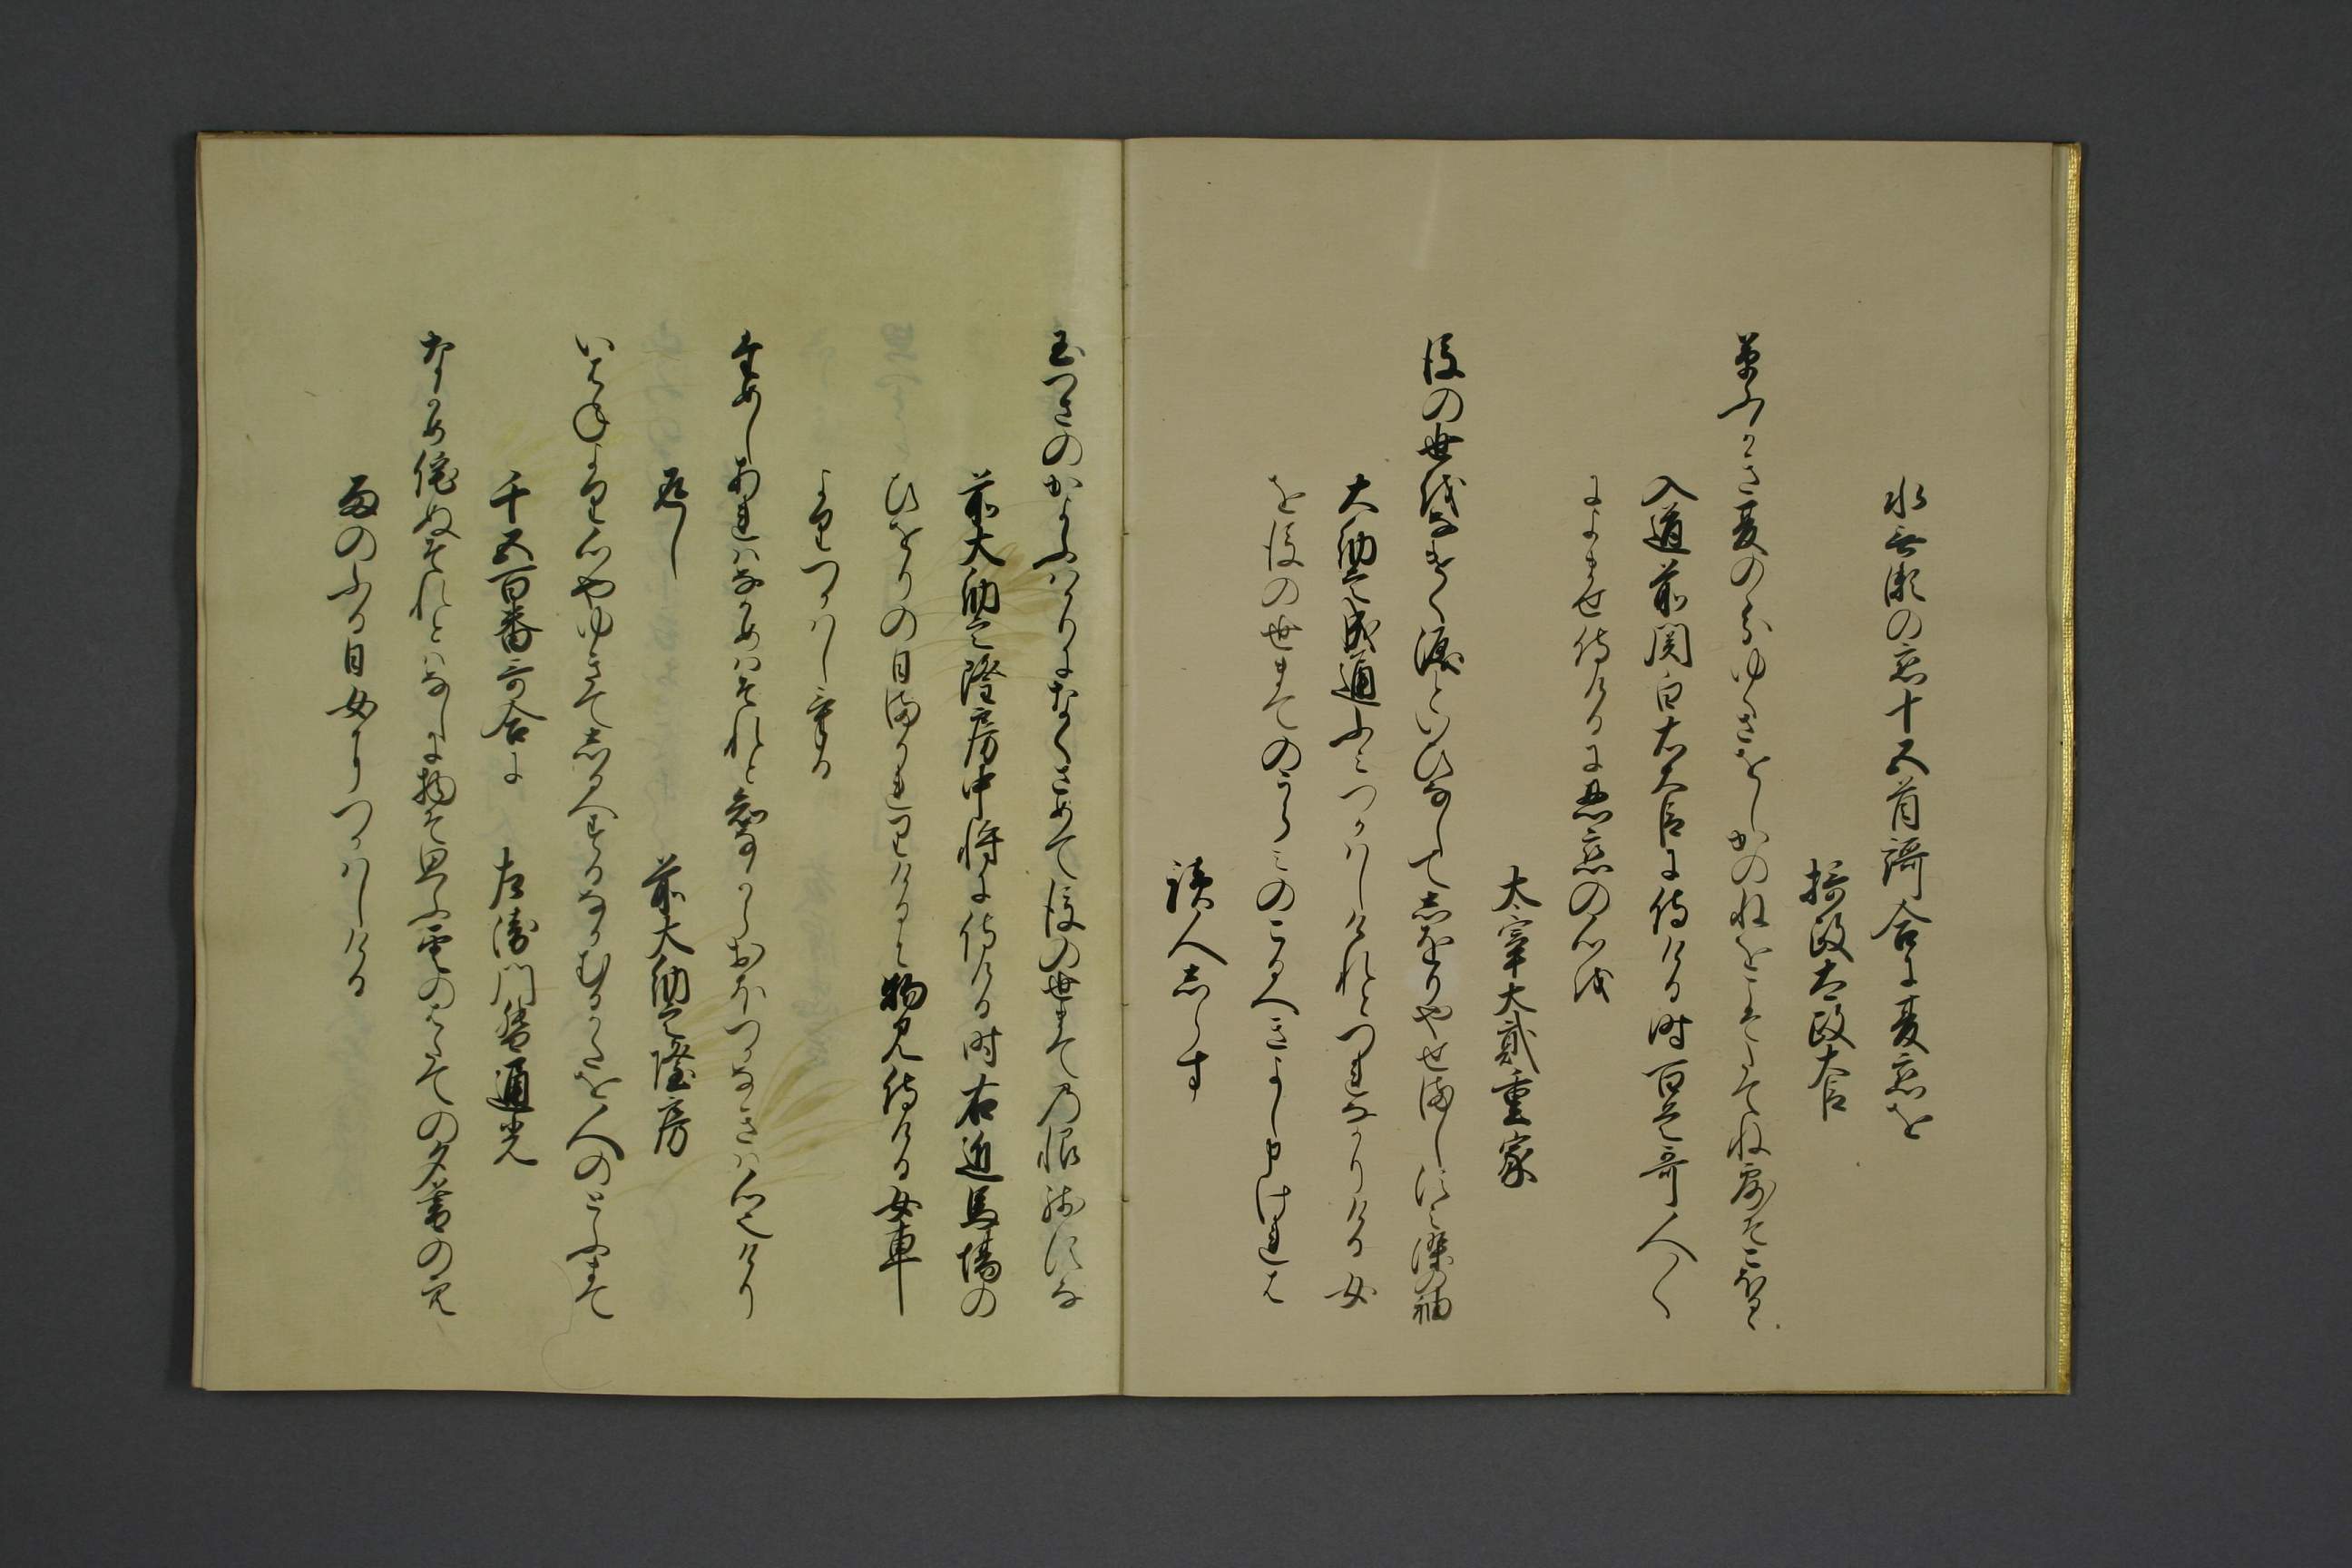 水無瀬の恋十五首謌合に夏恋を
摂政太政大臣
草ふかき夏の分ゆくさをしかのねをこそたてね露そこほるゝ
入道前関白右大臣に侍ける時百首哥人〱
によませ侍けるに忍恋の心を
太宰大貳重家
後の世をなけく涙といひなしてしほりやせましすみ染の袖
大納言成通ふみつかはしけれとつれなかりける女
を後の世まてのうらみのこるへきよし申けれは
讀人しらす
玉つさのかよふはかりになくさめて後の世まての恨残すな
前大納言隆房中将に侍ける時右近馬場の
ひをりの日まかれりけるに物見侍ける女車
よりつかはしける
ためしあれはなかめはそれと知なからおほつかなきは心也けり
返し　前大納言隆房
いはぬより心やゆきてしるへするなかむるかたを人のとふまて
千五百番哥合に　左衛門督通光
なかめ侘ぬそれとはなしに物そ思ふ雲のはたての夕暮の空
雨のふる日女につかはしける